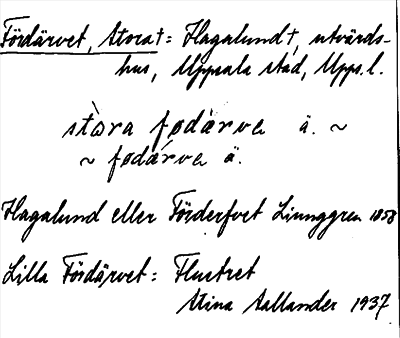 Fördärvet, Stora † = Hagalund †, utvärds-
hus, Uppsala stad, Upps. l.
stòra fødärva ä. ~
~ fodärva ä.
Hagalund eller Förderfvet Ljunggren 1858
Lilla Fördärvet = Flustret
Stina Sallander 1937